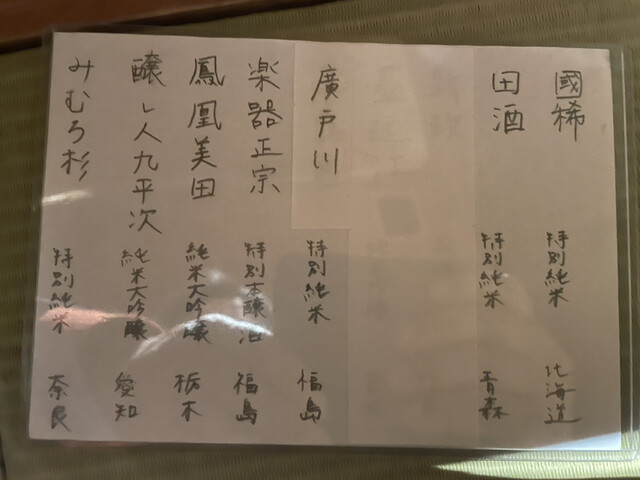 國稀 特別純米 北海道
田酒 特別純米 青森
廣戸川 特別純米 福島
楽器正宗 特別本醸酒 福島
鳳凰美田 純米大吟醸 栃木
醸し人九平次 純米大吟醸 愛知
みむろ杉 特別純米 奈良